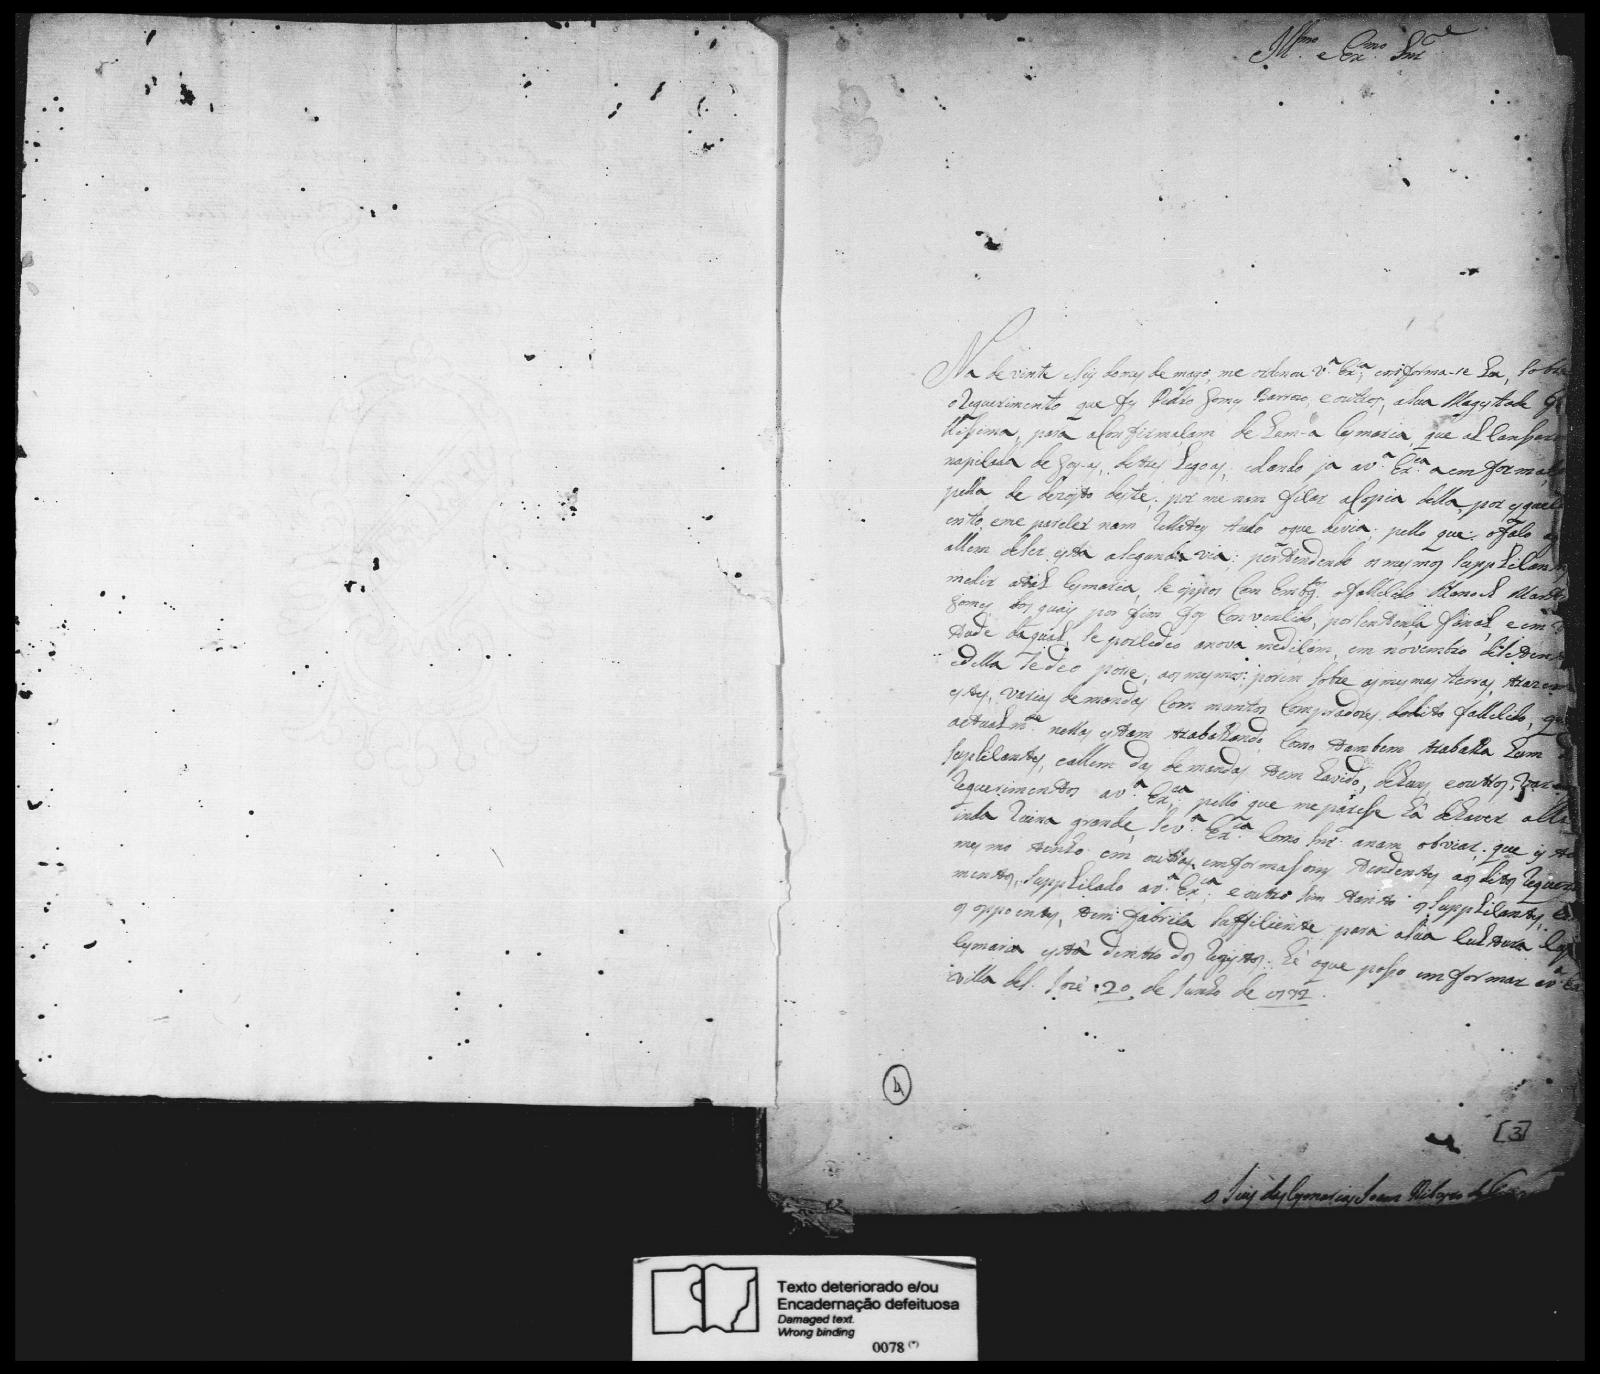 Illmo. e Exmo. Snr.
Na de vinte e seis do mes de mayo, me ordenou V.a Ex.a, emforma-se Eu, sobre
o Requerimento que fes Pedro Gomes Barroso, e outros, a sua Magestade
para a Confirmasam de huma Cysmaria, que
de tres Legoas, dando ja a v.a Ex.ca a emforma
pella de dezojto deste, por me nam ficar a Copia della, por
ento, e me parecer nam Rellatey tudo o que devia, pello que o faso
allem de ser esta a segunda via: pertendendo os mesmos Supplican
medir a tal Cysmaria, se oppos Com Emb.os o fallecido Manoel Mart
Gomes, dos quais por fim foy Convencido, por sentensa final, e em v
tude da qual, se procedeo a nova medisam, em novembro de
e della se deo posse, aos mesmos: porem sobre as mesmas terras, trazem
estes, varias demandas Com muntos Compradores do dito fallecido, que
actualm.te nellas estam trabalhando, Como tambem trabalha hum d
Supplicantes, e allem das demandas tem havido, de huns, e outros, var
Requerimentos a v.a Ex.ca, pello que me parese há de haver
inda Ruina grande, se v.a Ex.ca Como Snr. a nam obviar, que is to
mesmo tenho em outras emformasoens tendentes aos ditos Requeri
mentos, Supplicado a v.a Ex.ca; e outro sim tanto os Supplicantes, Co
os oppoentes, tem fabrica sufficiente para a sua Cultura
Cysmaria está dentro dos Registos. hé o que posso emformar a v.a Ex
villa de S. José 20 de Junho de 1772.
4
[3]
O Juis das Cysmarias Joam Ribeyro
Texto deteriorado e/ou
Encadernação defeituosa
Damaged text.
Wrong binding
0078 (*)